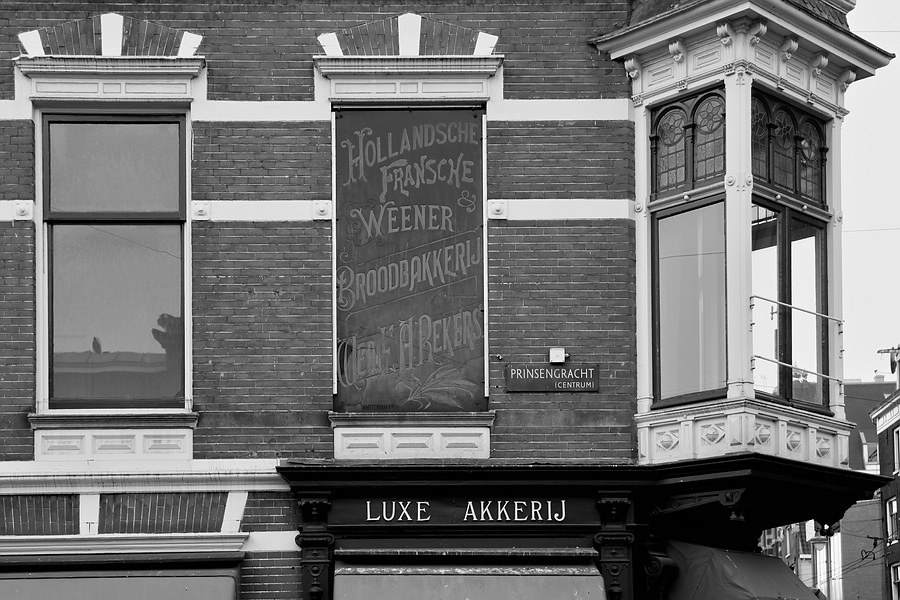 HOLLANDSCHE
FRANSCHE
&
WEENER
BROODBAKKERIJ
REKERS
PRINSENGRACHT
(CENTRUM)
LUXE AKKERIJ